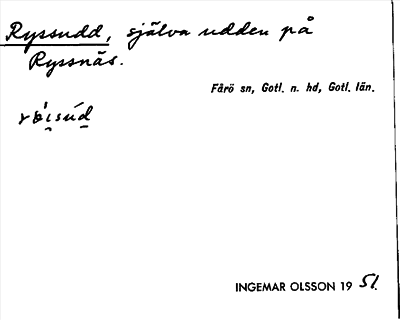 Ryssudd, själva udden på
Ryssnäs.
Fårö sn, Gotl. n. hd, Gotl. län.
INGEMAR OLSSON 19 51.